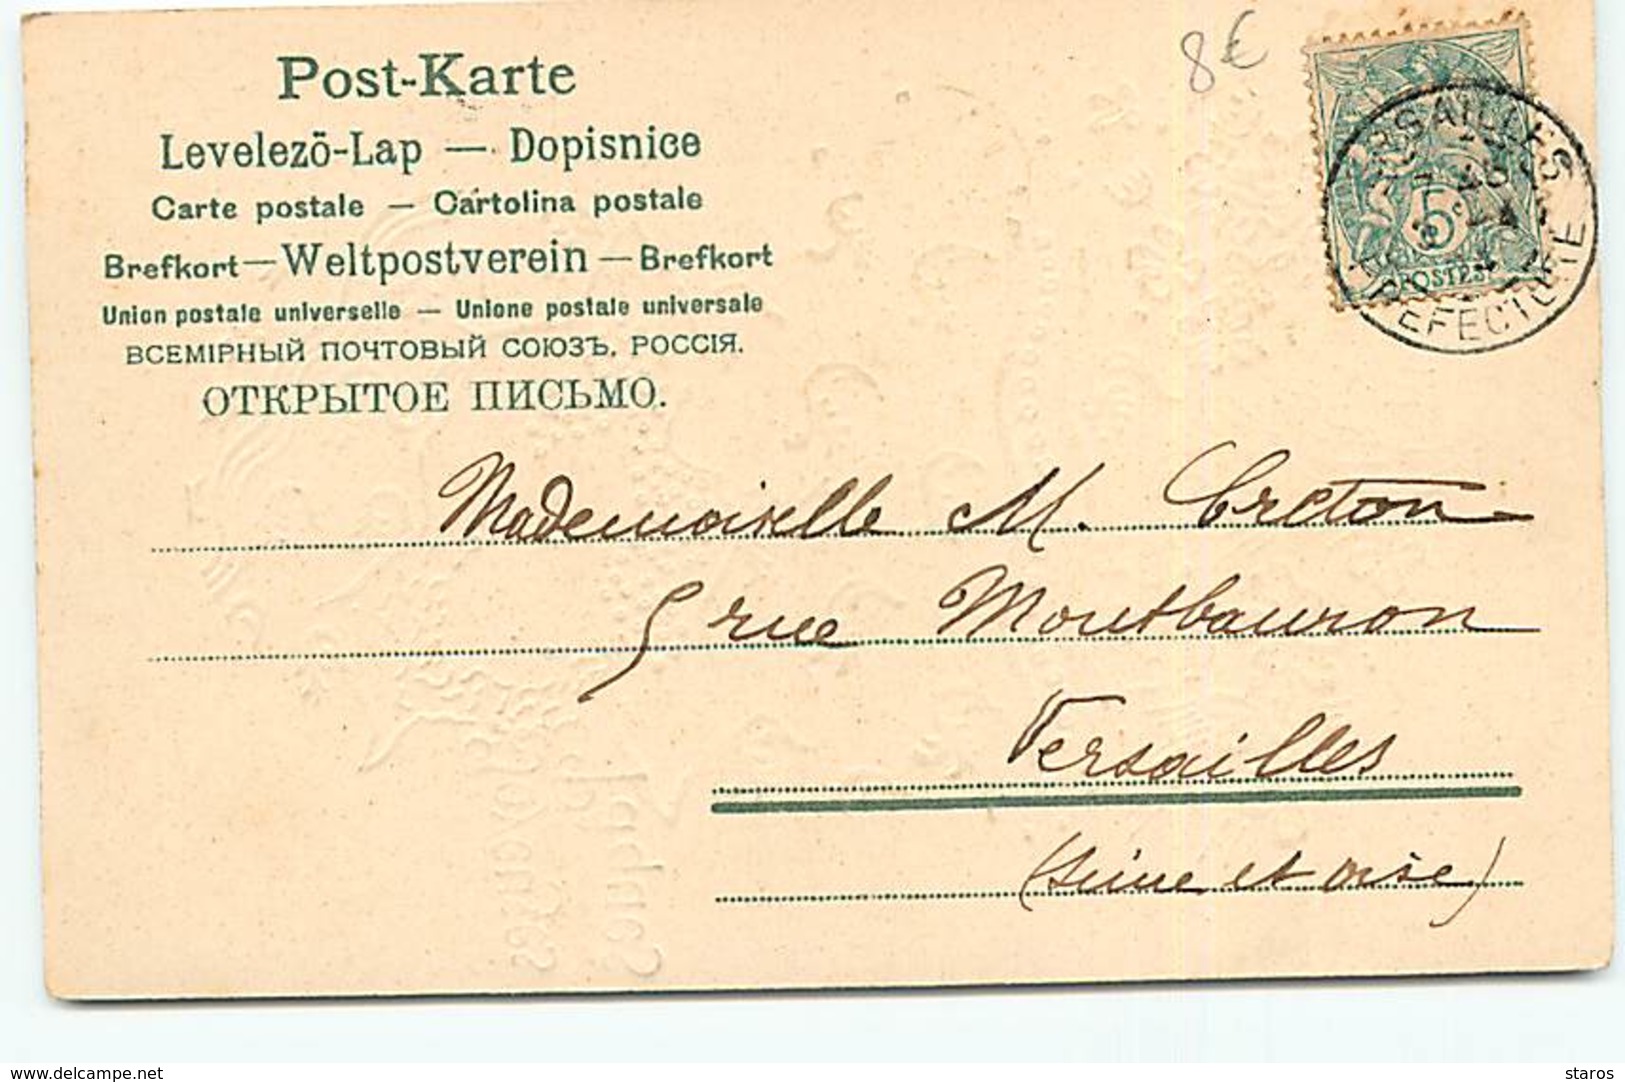 8€
Post-Karte
Levelezö-Lap — Dopisnice
Carte postale — Cartolina postale
Brefkort — Weltpostverein — Brefkort
Union postale universelle — Unione postale universale
ВСЕМІРНЫЙ ПОЧТОВЫЙ СОЮЗЪ. РОССІЯ.
ОТКРЫТОЕ ПИСЬМО.
VERSAILLES
5
POSTES
Mademoiselle M. Creton
5 rue Montbauron
Versailles
(Seine et Oise)
www.delcampe.net
staros